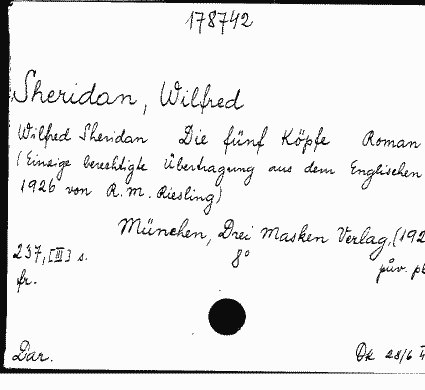 178742
Sheridan, Wilfred
Wilfred Sheridan Die fünf Köpfe Roman
(Einzige berechtigte Übertragung aus dem Englischen
1926 von R. M. Riesling)
München, Drei Masken Verlag, (192
237, [III] s. 8°
fr. pův.
Dar. Dk 28/6